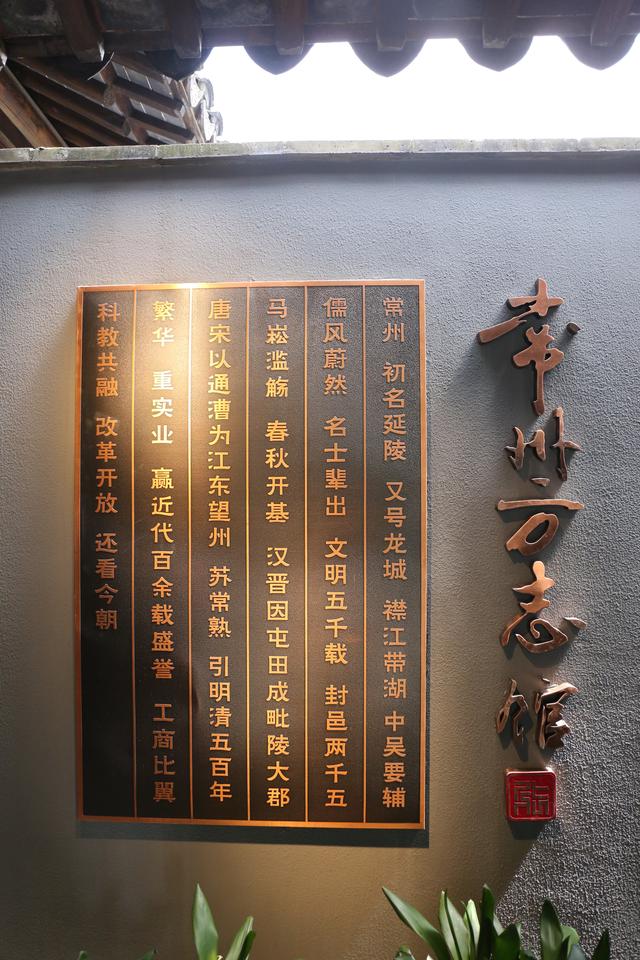 常州方志馆
常州 初名延陵 又号龙城 襟江带湖 中吴要辅
儒风蔚然 名士辈出 文明五千载 封邑两千五
马崧滥觞 春秋开基 汉晋因屯田成毗陵大郡
唐宋以通漕为江东望州 苏常熟 引明清五百年
繁华 重实业 赢近代百余载盛誉 工商比翼
科教共融 改革开放 还看今朝